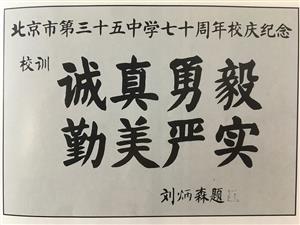 北京市第三十五中学七十周年校庆纪念
校训
诚真勇毅
勤美严实
刘炳森题